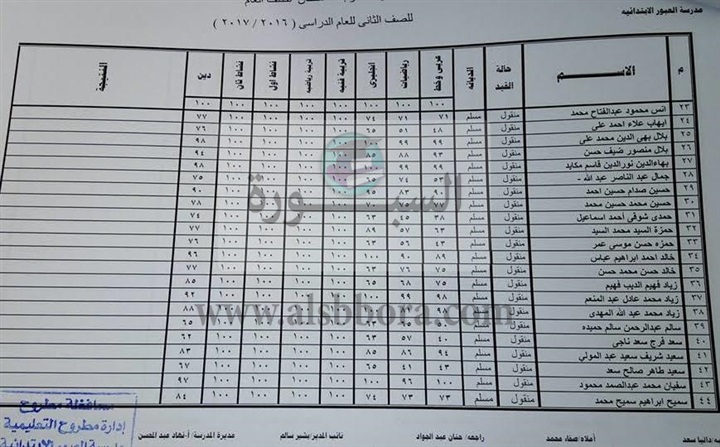 مدرسة العبور الابتدائيه
للصف الثانى للعام الدراسى ( ٢٠١٦ / ٢٠١٧ )
م الاســـــم حالة القيد الديانه عربى وخط رياضيات انجليزى تربية فنيه تربية رياضيه نشاط اول نشاط ثان دين النتيجة
١٠٠ ١٠٠ ١٠٠ ١٠٠ ١٠٠ ١٠٠ ١٠٠ ١٠٠
٢٣ انس محمود عبدالفتاح محمد منقول مسلم ٧١ ٧١ ٧٤ ١٠٠ ١٠٠ ١٠٠ ١٠٠ ٧٧
٢٤ ايهاب علاء احمد على منقول مسلم ٤٨ ٥١ ٦٥ ١٠٠ ١٠٠ ١٠٠ ١٠٠ ٧٦
٢٥ بلال بهى الدين محمد على منقول مسلم ٩٩ ٩٩ ١٠٠ ١٠٠ ١٠٠ ٩٨
٢٦ بلال منصور ضيف حسن منقول مسلم ٩٣ ٨٨ ١٠٠ ١٠٠ ١٠٠ ٩٤
٢٧ بهاءالدين نورالدين قاسم مكايد منقول مسلم ٩٩ ٩٩ ١٠٠ ١٠٠ ٩٨
٢٨ جمال عبد الناصر عبد اللاه منقول مسلم ٥٣ ٧٤ ٦٥ ١٠٠ ١٠٠ ٧٥
٢٩ حسين صدام حسين احمد منقول مسلم ٩٠ ٨٣ ٩٥ ١٠٠ ٩٠
٣٠ حسين محمد حسين محمد منقول مسلم ٧٨
٣١ حمدى شوقى أحمد اسماعيل منقول مسلم ٣٨ ٤٥ ٦٣ ١٠٠ ١٠٠ ١٠٠ ٧٤
٣٢ حمزة السيد محمد السيد منقول مسلم ٦٣ ٥٧ ٨٩ ١٠٠ ١٠٠ ١٠٠ ١٠٠ ٧٧
٣٣ حمزه حسن موسى عمر منقول مسلم ٤٣ ٥٦ ٦٣ ١٠٠ ١٠٠ ١٠٠ ١٠٠ ٧٦
٣٤ خالد احمد ابراهيم عباس منقول مسلم ٨٩ ٩٠ ١٠٠ ١٠٠ ١٠٠ ١٠٠ ١٠٠ ٩٦
٣٥ خالد حسن محمد حسن منقول مسلم ٧٥ ٧٦ ٦٣ ١٠٠ ١٠٠ ١٠٠ ١٠٠ ٧٧
٣٦ زياد فهيم الديب فهيم منقول مسلم ٧٥ ٦٨ ١٠٠ ١٠٠ ١٠٠ ١٠٠ ٨٥
٣٧ زياد محمد عادل عبد المنعم منقول مسلم ٩٨ ٩٩ ١٠٠ ١٠٠ ١٠٠ ١٠٠ ٩٢
٣٨ زياد محمد عبد الله المهدى منقول مسلم
٣٩ سالم عبدالرحمن سالم حميده منقول مسلم ٦٢
٤٠ سعد فرج سعد ناجى منقول مسلم ٤٠ ٥٧ ٦٣ ١٠٠ ١٠٠ ١٠٠ ١٠٠ ٦٥
٤١ سعيد شريف سعيد عبد المولي منقول مسلم ٩٤ ٨٦ ٨٥ ١٠٠ ١٠٠ ١٠٠ ١٠٠ ٨٣
٤٢ سعيد طاهر صالح سعد منقول مسلم ٤٣ ٤١ ٦٥ ١٠٠ ١٠٠ ١٠٠ ١٠٠ ٦٧
٤٣ سفيان محمد عبدالصمد محمود منقول مسلم ١٠٠ ٩٦ ١٠٠ ١٠٠ ١٠٠ ١٠٠ ١٠٠ ٩٧
٤٤ سميح ابراهيم سميح محمد منقول مسلم ٧٣ ٧٣ ٧٤ ١٠٠ ١٠٠ ١٠٠ ١٠٠ ٨٤
السبورة
www.alsbbora.com
داليا سعد أملاه صفاء محمد راجعه/ حنان عبد الجواد نائب المدير/بشير سالم مديرة المدرسة/ أ-نهاد عبد المحسن
محافظة مطروح
إدارة مطروح التعليمية
مدرسة العبور الابتدائية